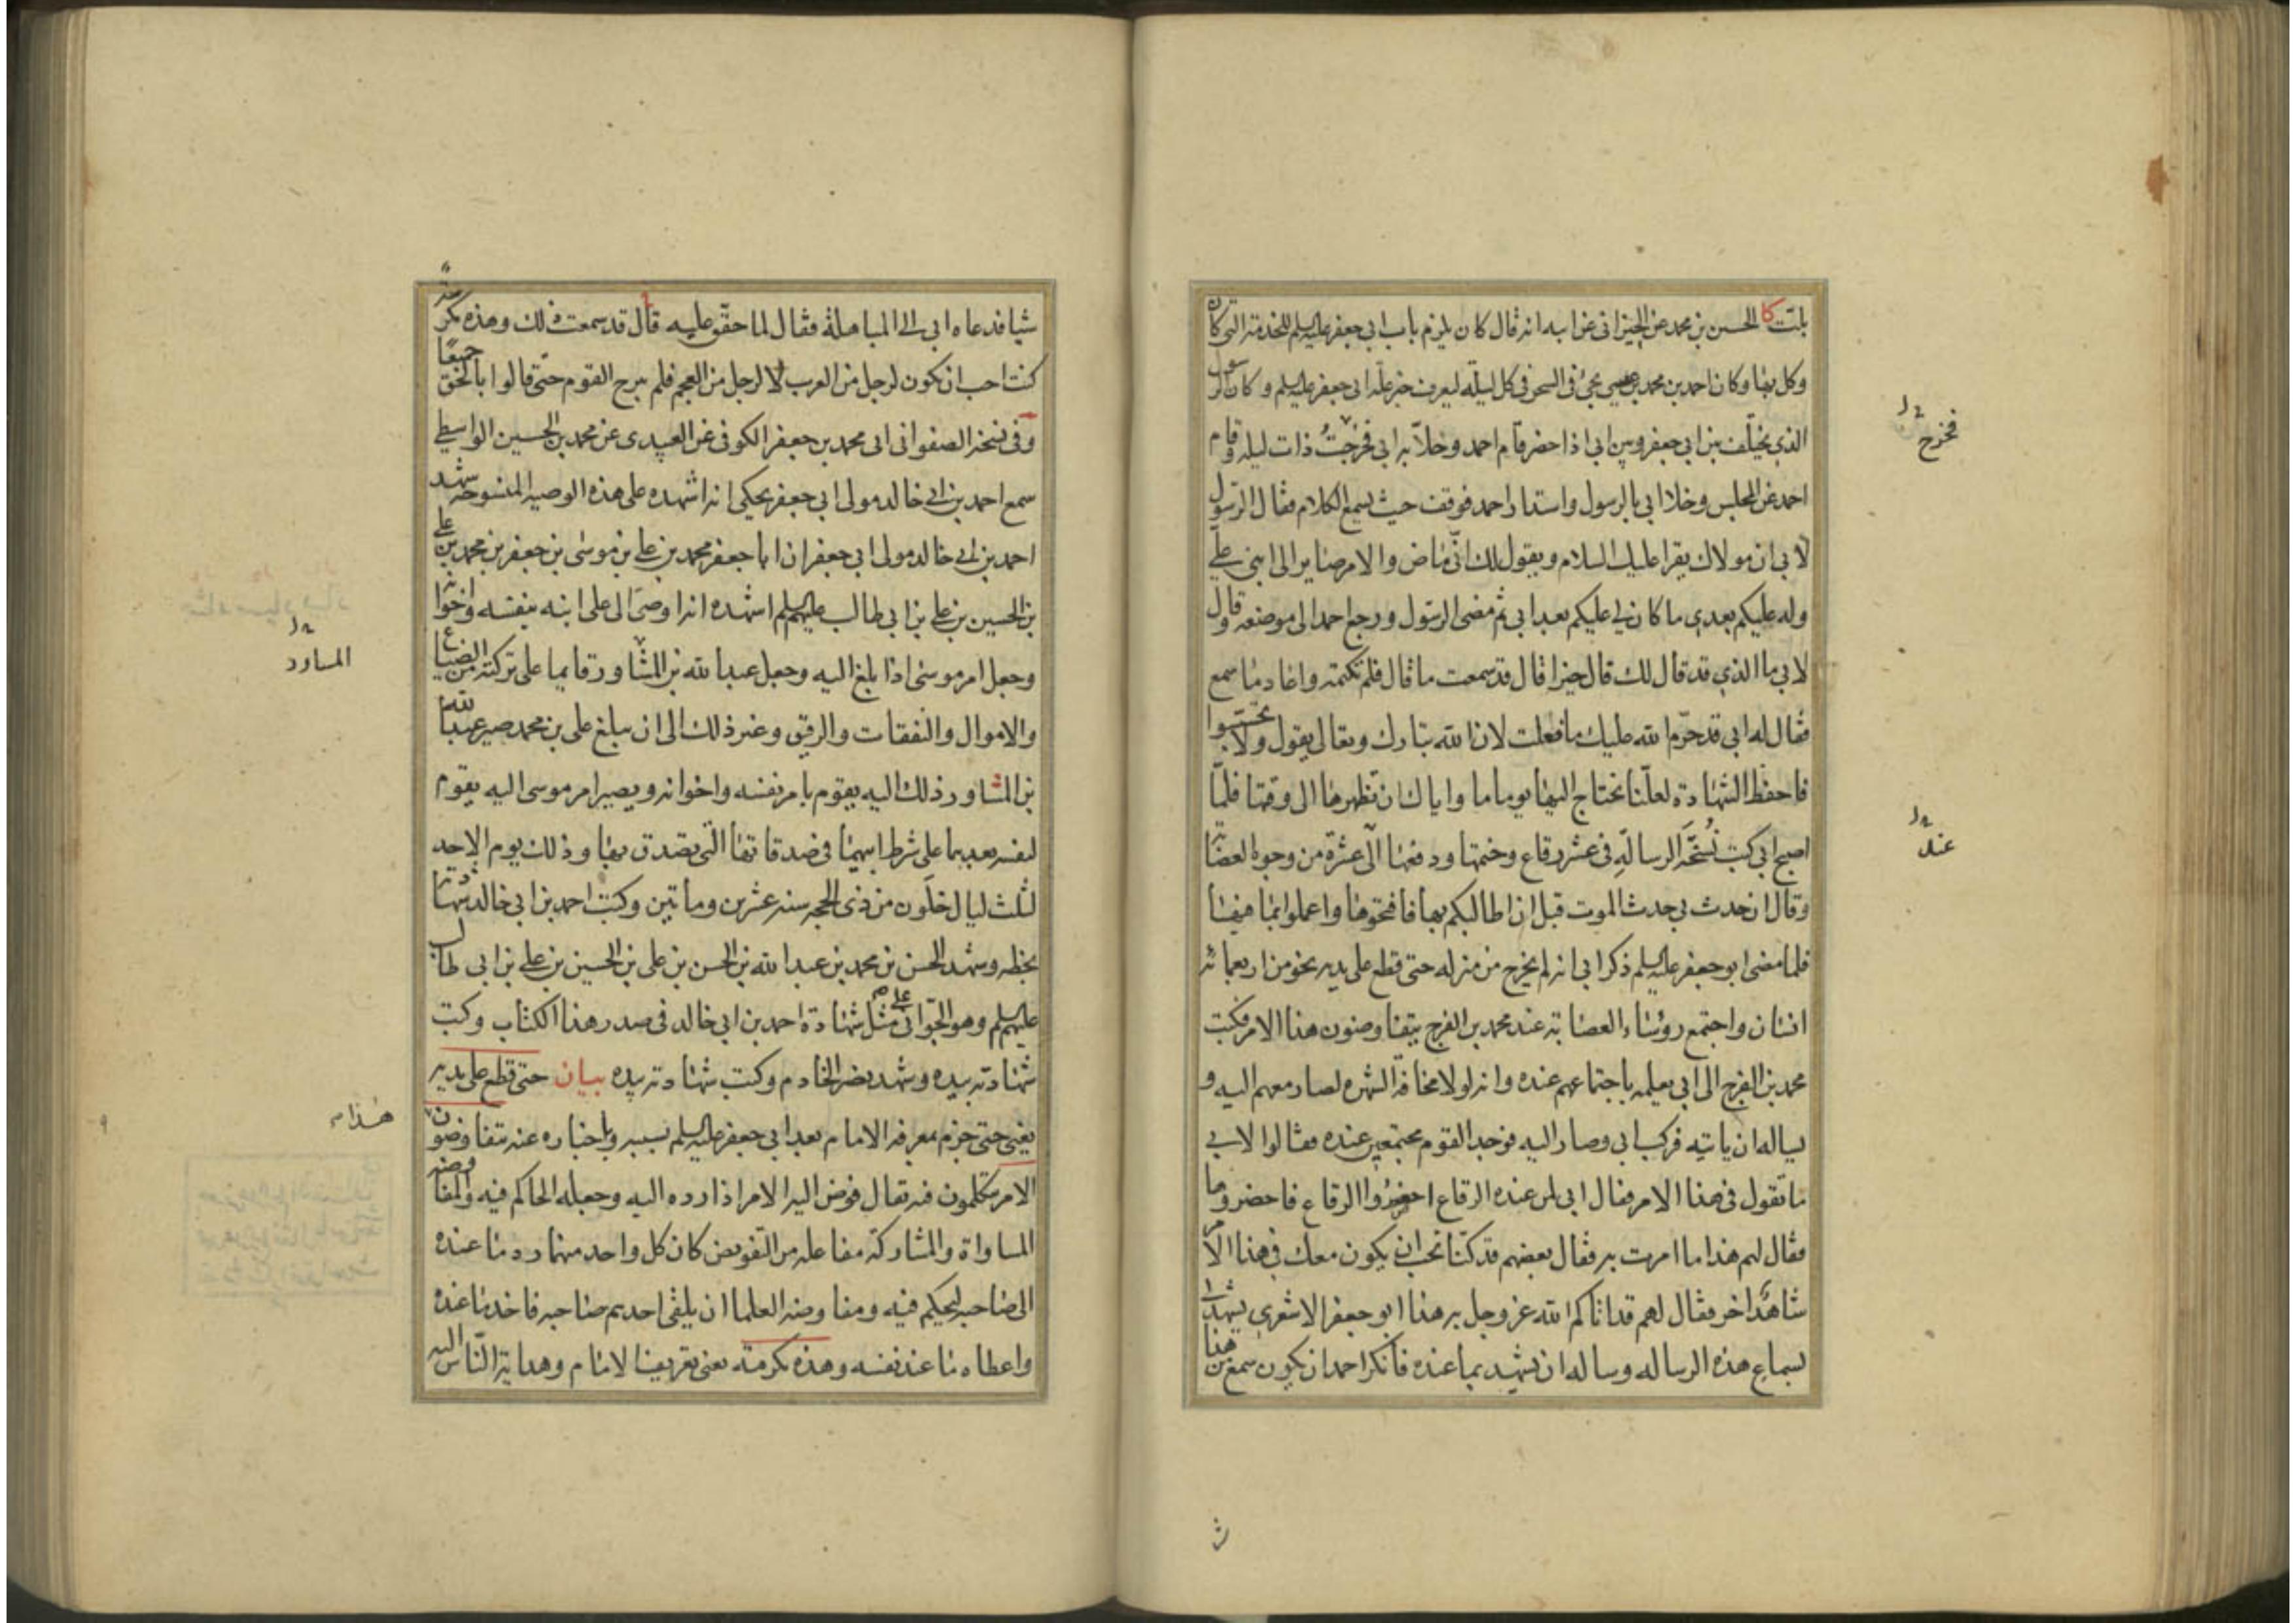 بلت كا الحسين بن محمد عن الخيراني عن ابيه انه قال كان يلزم باب ابي جعفر عليه السلم للخدمة التي كان
وكل بها وكان احمد بن محمد بن عيسى يجئ في السحر في كل ليلة ليعرف خبر علة ابي جعفر عليه السلم وكان الرسول
الذي يختلف بين ابي جعفر وبين ابي اذا حضر قام احمد وخلا به ابي فخرجت ذات ليلة وقام
احمد عن المجلس وخلا ابي بالرسول واستدار احمد فوقف حيث يسمع الكلام فقال الرسول
لابي ان مولاك يقرا عليك السلام ويقول لك اني ماض والامر صاير الى ابني علي
وله عليكم بعدي ما كان لي عليكم بعد ابي ثم مضى الرسول ورجع احمد الى موضعه وقال
لابي ما الذي قد قال لك قال خيرا قال قد سمعت ما قال فلم تكتمه واعاد ما سمع
فقال له ابي قد حرم الله عليك ما فعلت لان الله تبارك وتعالى يقول ولا تجسسوا
فاحفظ الشهادة لعلنا نحتاج اليها يوما ما واياك ان تظهرها الى وقتها فلما
اصبح ابي كتب نسخة الرسالة في عشر رقاع وختمها ودفعها الى عشرة من وجوه العصابة
وقال ان حدث بي حدث الموت قبل ان اطالبكم بها فافتحوها واعملوا بما فيها
فلما مضى ابو جعفر عليه السلم ذكر ابي انه لم يخرج من منزله حتى قطع على يديه نحو من اربعمائة
انسان واجتمع رؤساء العصابة عند محمد بن الفرج يتفاوضون هذا الامر فكتب
محمد بن الفرج الى ابي يعلمه باجتماعهم عنده وانه لولا مخافة الشهرة لصار معهم اليه و
يساله ان ياتيه فركب ابي وصار اليه فوجد القوم مجتمعين عنده فقالوا لابي
ما تقول في هذا الامر فقال ابي لمن عنده الرقاع احضروا الرقاع فاحضروها
فقال لهم هذا ما امرت به فقال بعضهم قد كنا نحب ان يكون معك في هذا الامر
شاهد اخر فقال لهم قد اتاكم الله عز وجل به هذا ابو جعفر الاشعري يشهد لي
بسماع هذه الرسالة وساله ان يشهد بما عنده فانكر احمد ان يكون سمع من هذا
فخرج
عند
شيا فدعاه ابي الى المباهلة فقال لما حقق عليه قال قد سمعت ذلك وهذه مكرمة
كنت احب ان تكون لرجل من العرب لا لرجل من العجم فلم يبرح القوم حتى قالوا بالحق جميعا
وفي نسخة الصفواني ابي محمد بن جعفر الكوفي عن العبيدي عن محمد بن الحسين الواسطي
سمع احمد بن ابي خالد مولى ابي جعفر يحكي انه اشهده على هذه الوصية المنسوخة شهد
احمد بن ابي خالد مولى ابي جعفر ان ابا جعفر محمد بن علي بن موسى بن جعفر بن محمد بن علي
بن الحسين بن علي بن ابي طالب عليهم السلم اشهده انه اوصى الى علي ابنه بنفسه واخواته
وجعل امر موسى اذا بلغ اليه وجعل عبد الله بن المشاور قايما على تركته من الضياع
والاموال والنفقات والرقيق وغير ذلك الى ان يبلغ علي بن محمد صير عبد الله
بن المشاور ذلك اليه يقوم بامر نفسه واخوانه ويصير امر موسى اليه يقوم
لنفسه بعدهما على شرط ابيهما في صدقاته التي تصدق بها وذلك يوم الاحد
لثلث ليال خلون من ذي الحجة سنة عشرين ومائتين وكتب احمد بن ابي خالد شهادته
بخطه وشهد الحسن بن محمد بن عبد الله بن الحسن بن علي بن الحسين بن علي بن ابي طالب
عليهم السلم وهو الجواني على مثل شهادة احمد بن ابي خالد في صدر هذا الكتاب وكتب
شهادته بيده وشهد نصر الخادم وكتب شهادته بيده بيان حتى قطع على يديه
يعني حتى جزم بمعرفة الامام بعد ابي جعفر عليه السلم بسببه وباخباره عنه يتفاوضون
الامر يتكلمون فيه يقال فوض اليه الامر اذا رده اليه وجعله الحاكم فيه والمفاوضة
المساواة والمشاركة مفاعلة من التفويض كان كل واحد منهما رد ما عنده
الى صاحبه ليحكم فيه ومفاوضة العلما ان يلقى احدهم صاحبه فاخذ ما عنده
واعطاه ما عند نفسه وهذه مكرمة يعني تعريف الامام وهداية الناس اليه
المساور
هذا